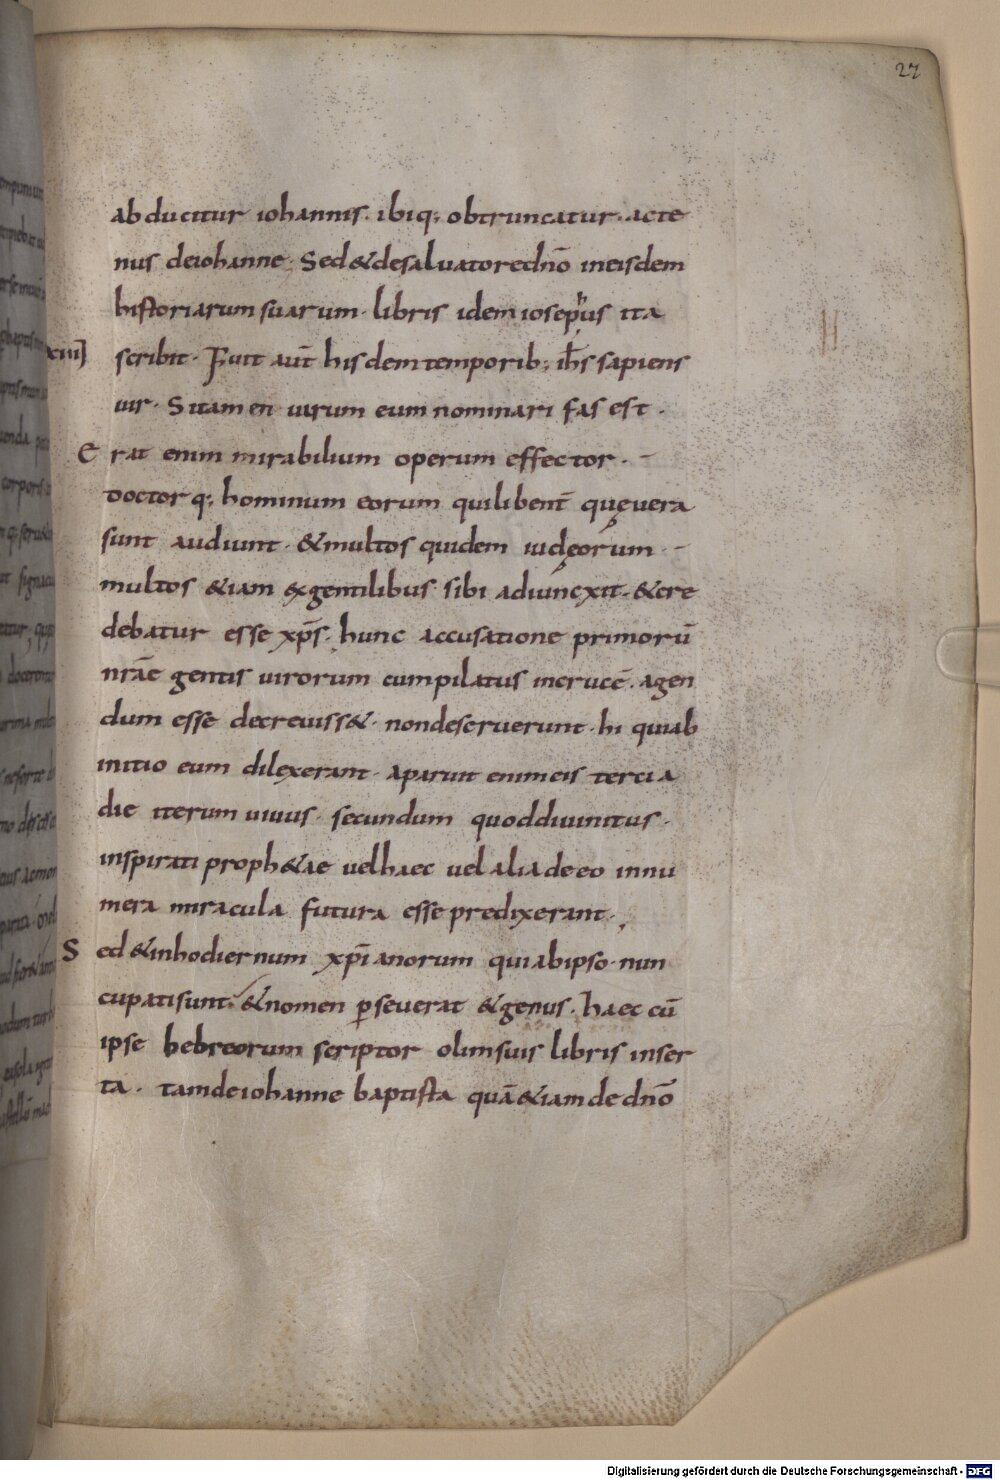 27
abducitur iohannis. ibiq; obtruncatur. acte
nus deiohanne. Sed & desaluatore dnō ineisdem
historiarum suarum. libris idem iosephus ita
xiii] scribit. Fuit aut̄ hisdem temporib; ih̄s sapiens
uir. Si tamen uirum eum nominari fas est.
Erat enim mirabilium operum effector.
Doctor q; hominum eorum qui libent̄ quę uera
sunt audiunt. & multos quidem iudęorum
multos &iam ex gentilibus sibi adiuncxit. & cre
debatur esse xp̄s. hunc accusatione primorū
nr̄ae gentis uirorum cum pilatus in crucē. agen
dum esse decreuiss&. non deseruerunt. hi qui ab
initio eum dilexerant. aparuit enim eis tercia
die iterum uiuus. secundum quod diuinitus.
inspirati proph&ae uel haec uel alia de eo innu
mera miracula futura esse predixerant.
Sed & in hodiernum xp̄ianorum qui ab ipso. nun
cupati sunt. & nomen p̱seuerat & genus. haec cū
ipse hebreorum scriptor olim suis libris inser
ta. tam de iohanne baptista quā &iam de dnō
Digitalisierung gefördert durch die Deutsche Forschungsgemeinschaft - DFG